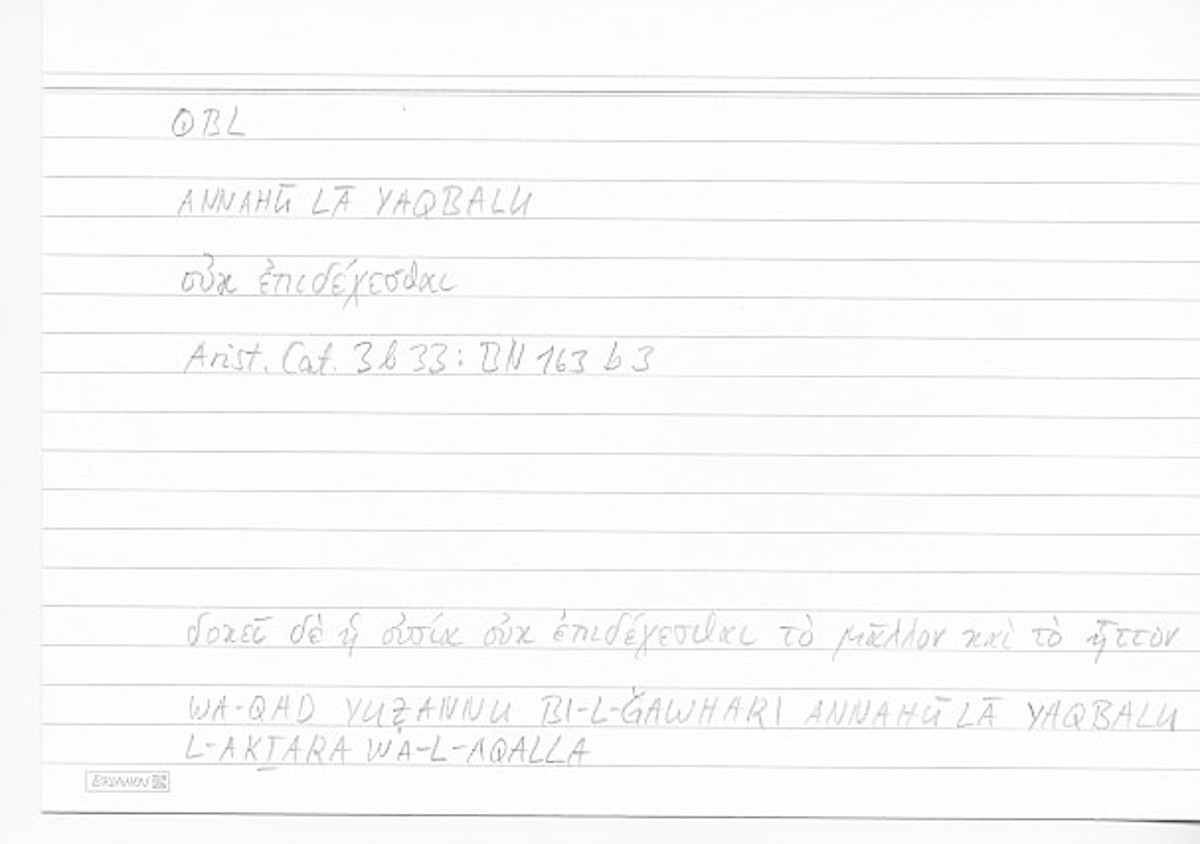 QBL
ANNAHŪ LĀ YAQBALU
οὐκ ἐπιδέχεσθαι
Arist. Cat. 3 b 33 : BN 163 b 3
δοκεῖ δὲ ἡ οὐσία οὐκ ἐπιδέχεσθαι τὸ μᾶλλον καὶ τὸ ἧττον
WA-QAD YUẒANNU BI-L-ǦAWHARI ANNAHŪ LĀ YAQBALU
L-AKṮARA WA-L-AQALLA
BRUNNEN